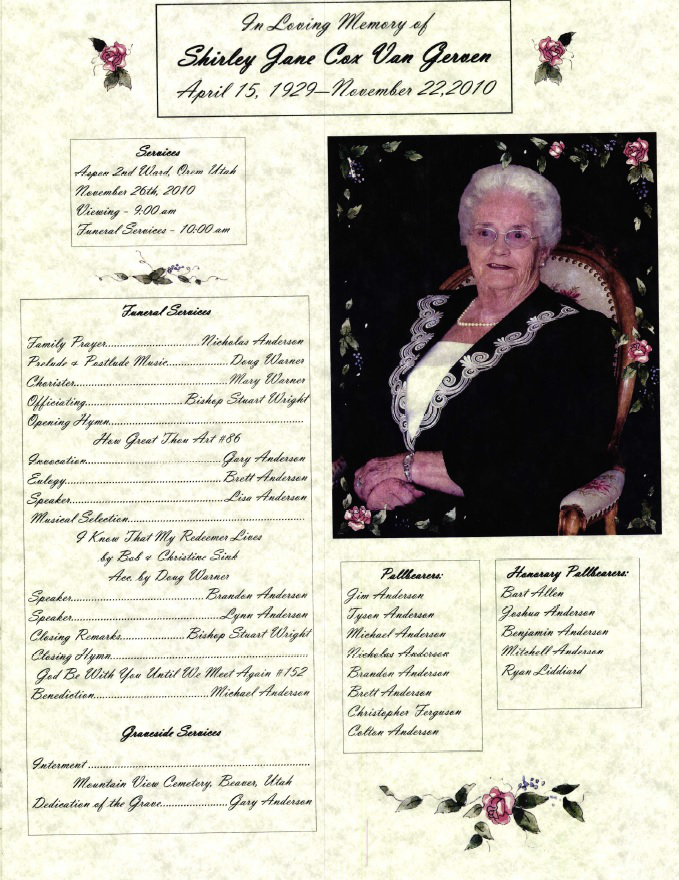 In Loving Memory of
Shirley Jane Cox Van Gerven
April 15, 1929—November 22,2010
Services
Aspen 2nd Ward, Orem Utah
November 26th, 2010
Viewing - 9:00 am
Funeral Services - 10:00 am
Funeral Services
Family Prayer..............................Nicholas Anderson
Prelude & Postlude Music....................Doug Warner
Chorister.................................................Mary Warner
Officiating................................Bishop Stuart Wright
Opening Hymn..........................................................
How Great Thou Art #86
Invocation.............................................Gary Anderson
Eulogy...................................................Brett Anderson
Speaker..................................................Lisa Anderson
Musical Selection.......................................................
I Know That My Redeemer Lives
by Bob & Christine Sink
Acc. by Doug Warner
Speaker............................................Brandon Anderson
Speaker..................................................Lynn Anderson
Closing Remarks.....................Bishop Stuart Wright
Closing Hymn............................................................
God Be With You Until We Meet Again #152
Benediction.....................................Michael Anderson
Graveside Services
Interment ..................................................................
Mountain View Cemetery, Beaver, Utah
Dedication of the Grave....................Gary Anderson
Pallbearers:
Jim Anderson
Tyson Anderson
Michael Anderson
Nicholas Anderson
Brandon Anderson
Brett Anderson
Christopher Ferguson
Colton Anderson
Honorary Pallbearers:
Bart Allen
Joshua Anderson
Benjamin Anderson
Mitchell Anderson
Ryan Liddiard